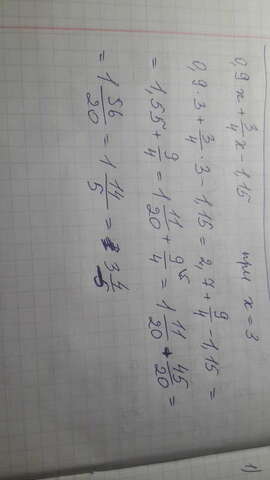 1)
0,9x + 3/4 x - 1,15 при x = 3
0,9 · 3 + 3/4 · 3 - 1,15 = 2,7 + 9/4 - 1,15 =
= 1,55 + 9/4 = 1 11/20 + 9/4 ⁵ = 1 11/20 + 45/20 =
= 1 56/20 = 1 14/5 = 3 4/5